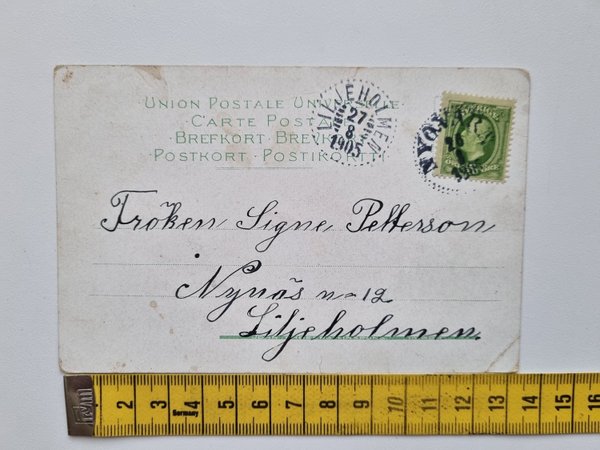 UNION POSTALE UNIVERSELLE
· CARTE POSTALE
· BREFKORT · BREVKORT
· POSTKORT · POSTIKORTTI
LILJEHOLMEN
27
8
1905
SVERIGE
Fröken Signe Petterson
Nynäs n-12
Liljeholmen.
2 3 4 5 6 7 8 9 10 11 12 13 14 15 16
Germany